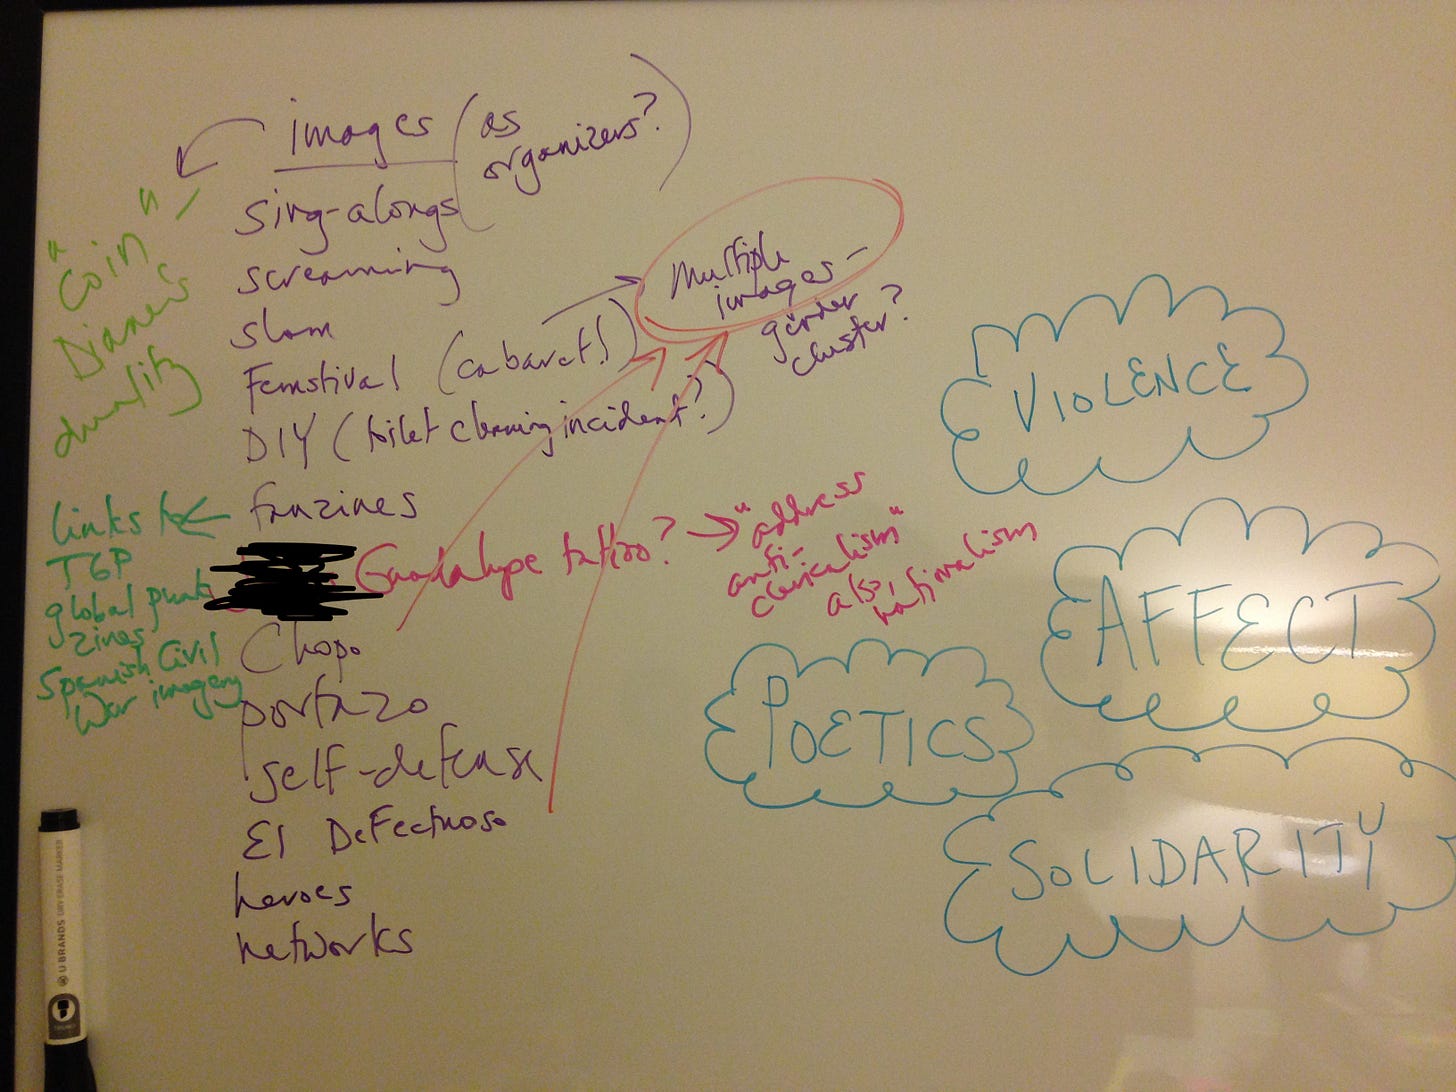 images (as
organizers?)
sing-alongs
screaming
slam
Femstival (cabaret!)
DIY (toilet cleaning incident?)
fanzines
Guadalupe tattoo? → "address
anti-
clericalism"
also, nationalism
Chopo
portazo
self-defense
El Defectuoso
heroes
networks
"Coin" -
Diane's
duality
links to
TGP
global punk
zines
Spanish Civil
War imagery
Multiple
images -
gender
cluster?
VIOLENCE
AFFECT
POETICS
SOLIDARITY
U BRANDS DRY ERASE MARKER